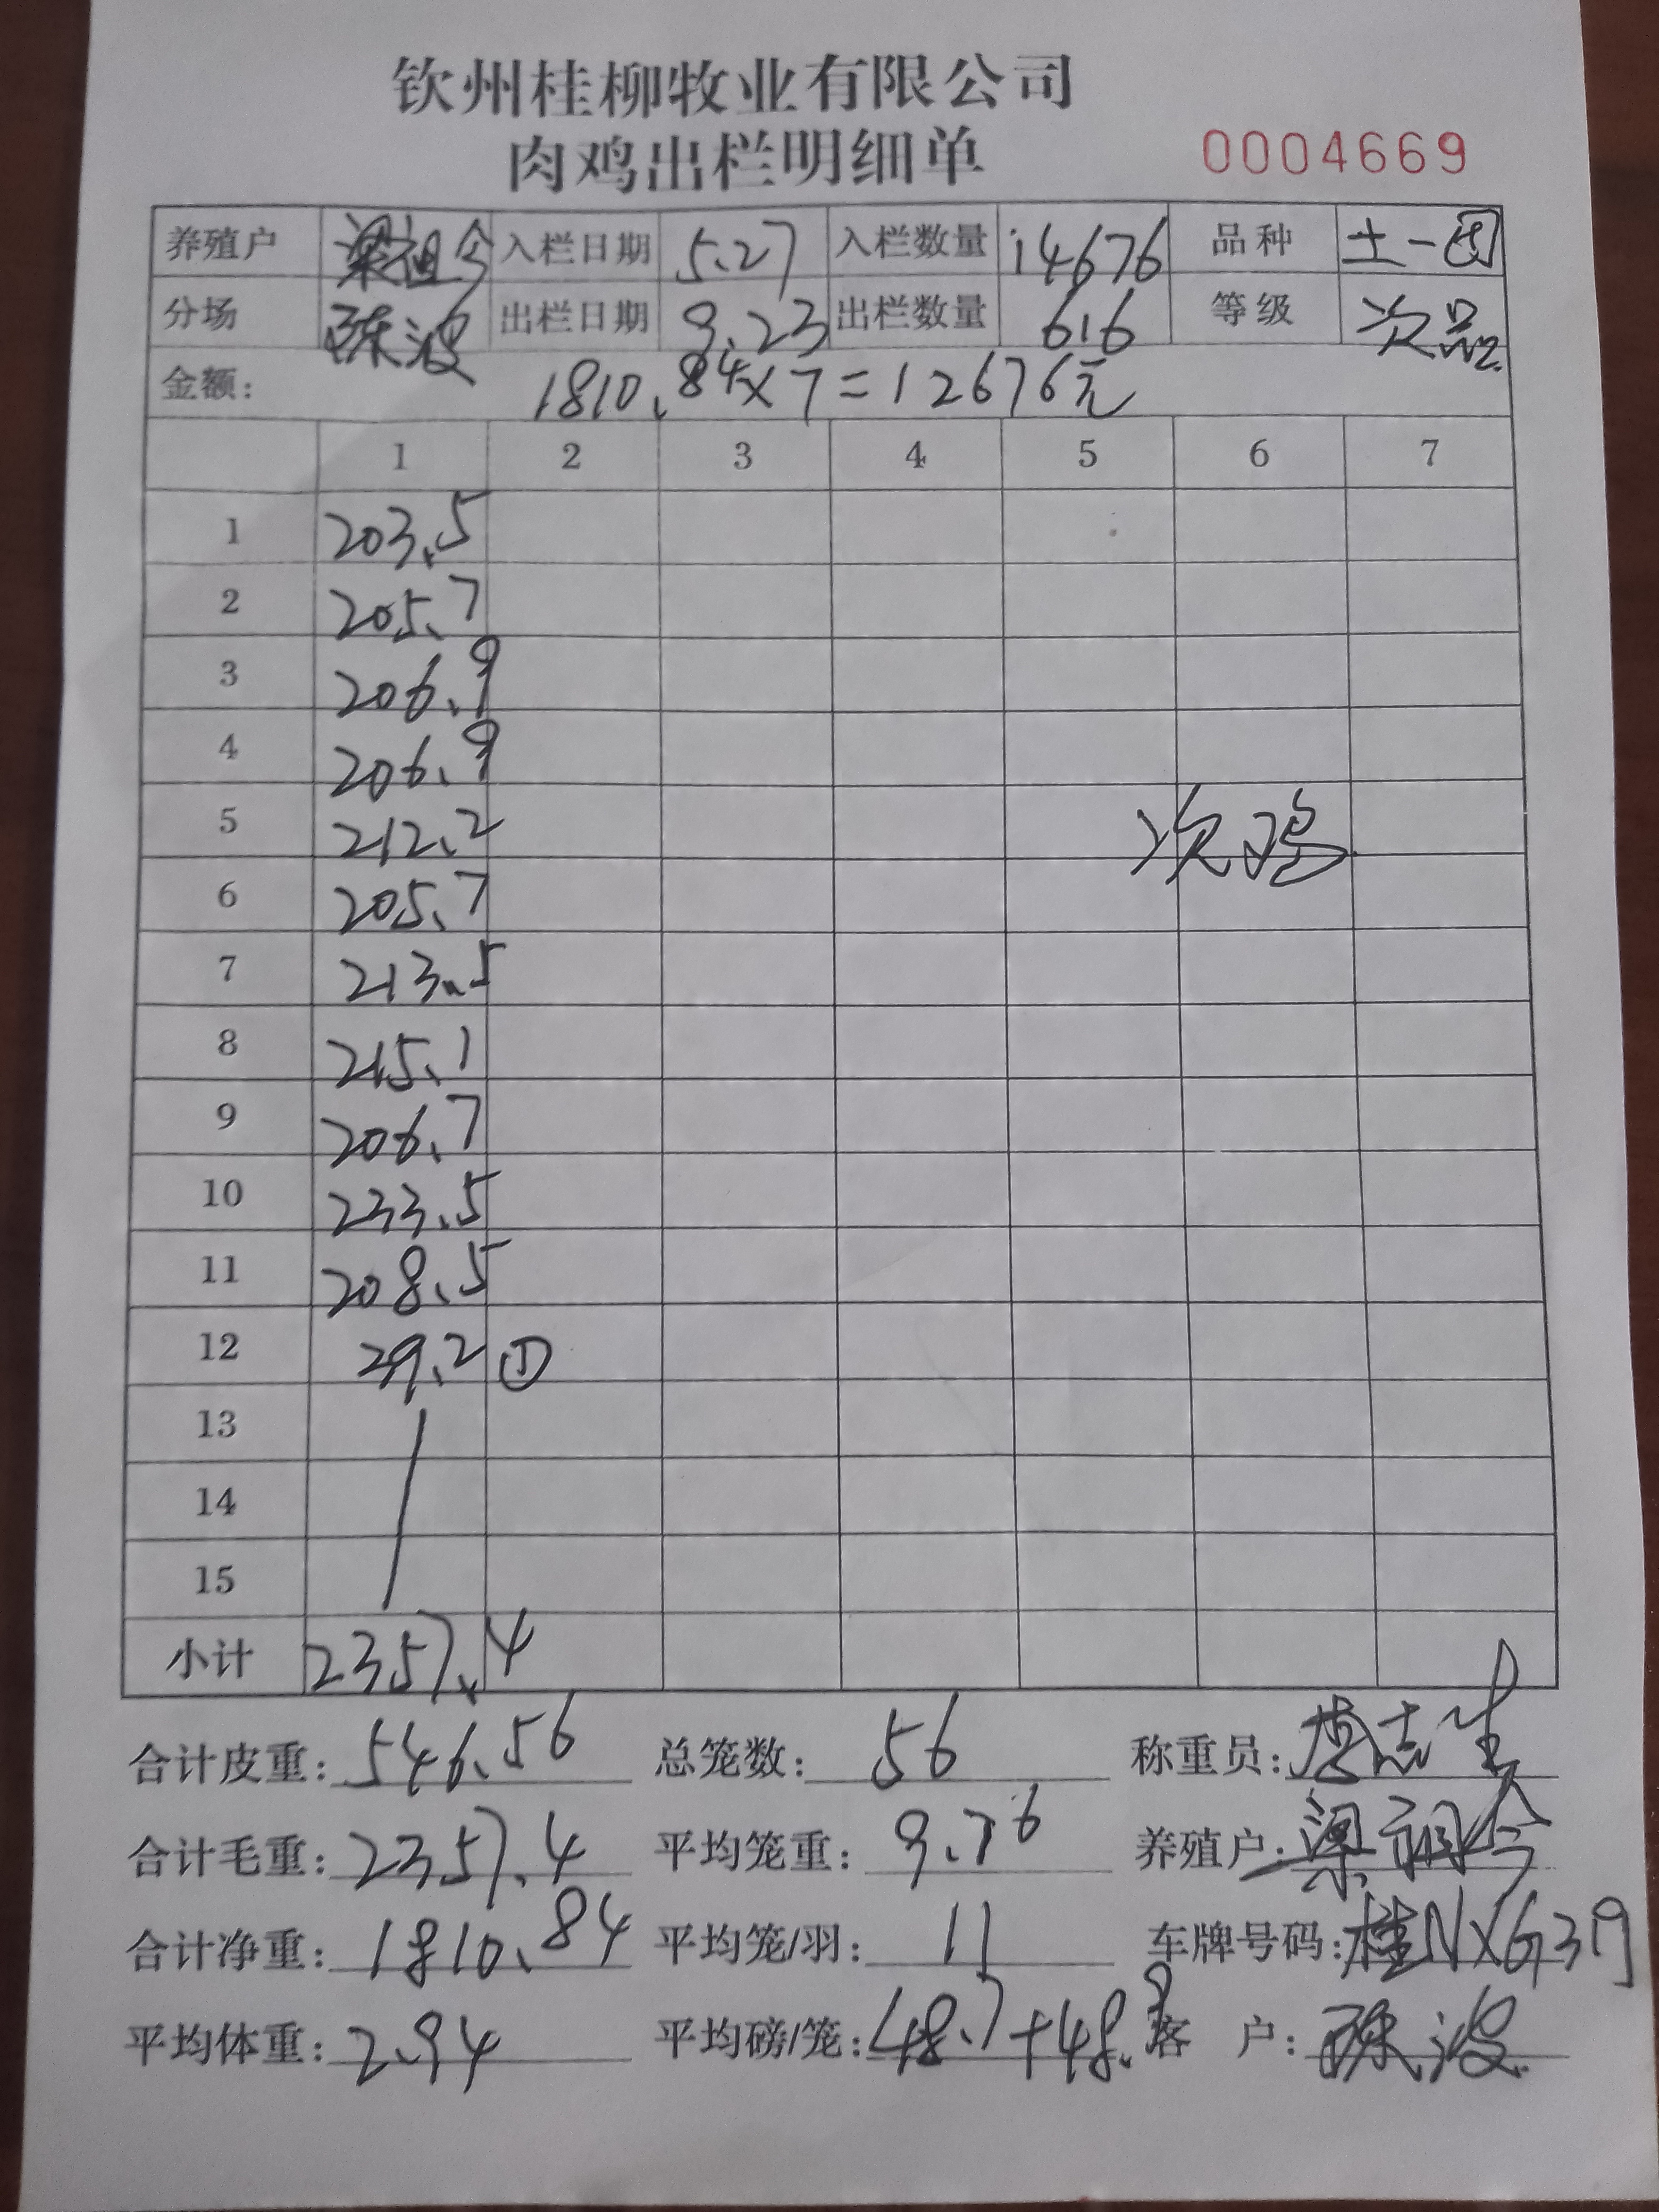 钦州桂柳牧业有限公司
肉鸡出栏明细单 0004669
养殖户 梁祖今 入栏日期 5.27 入栏数量 14676 品种 土一
分场 陈波 出栏日期 9.23 出栏数量 616 等级 次品
金额: 1810.84×7=12676元
1 2 3 4 5 6 7
1 203.5
2 205.7
3 206.9
4 206.9
5 212.2 次鸡
6 205.7
7 213.5
8 215.1
9 206.7
10 233.5
11 208.5
12 39.2 ①
13
14
15
小计 2357.4
合计皮重: 546.56 总笼数: 56 称重员: 志生
合计毛重: 2357.4 平均笼重: 9.76 养殖户: 梁祖今
合计净重: 1810.84 平均笼/羽: 11 车牌号码: 桂NXG339
平均体重: 2.94 平均磅/笼: 48.7+48.8 客 户: 陈波